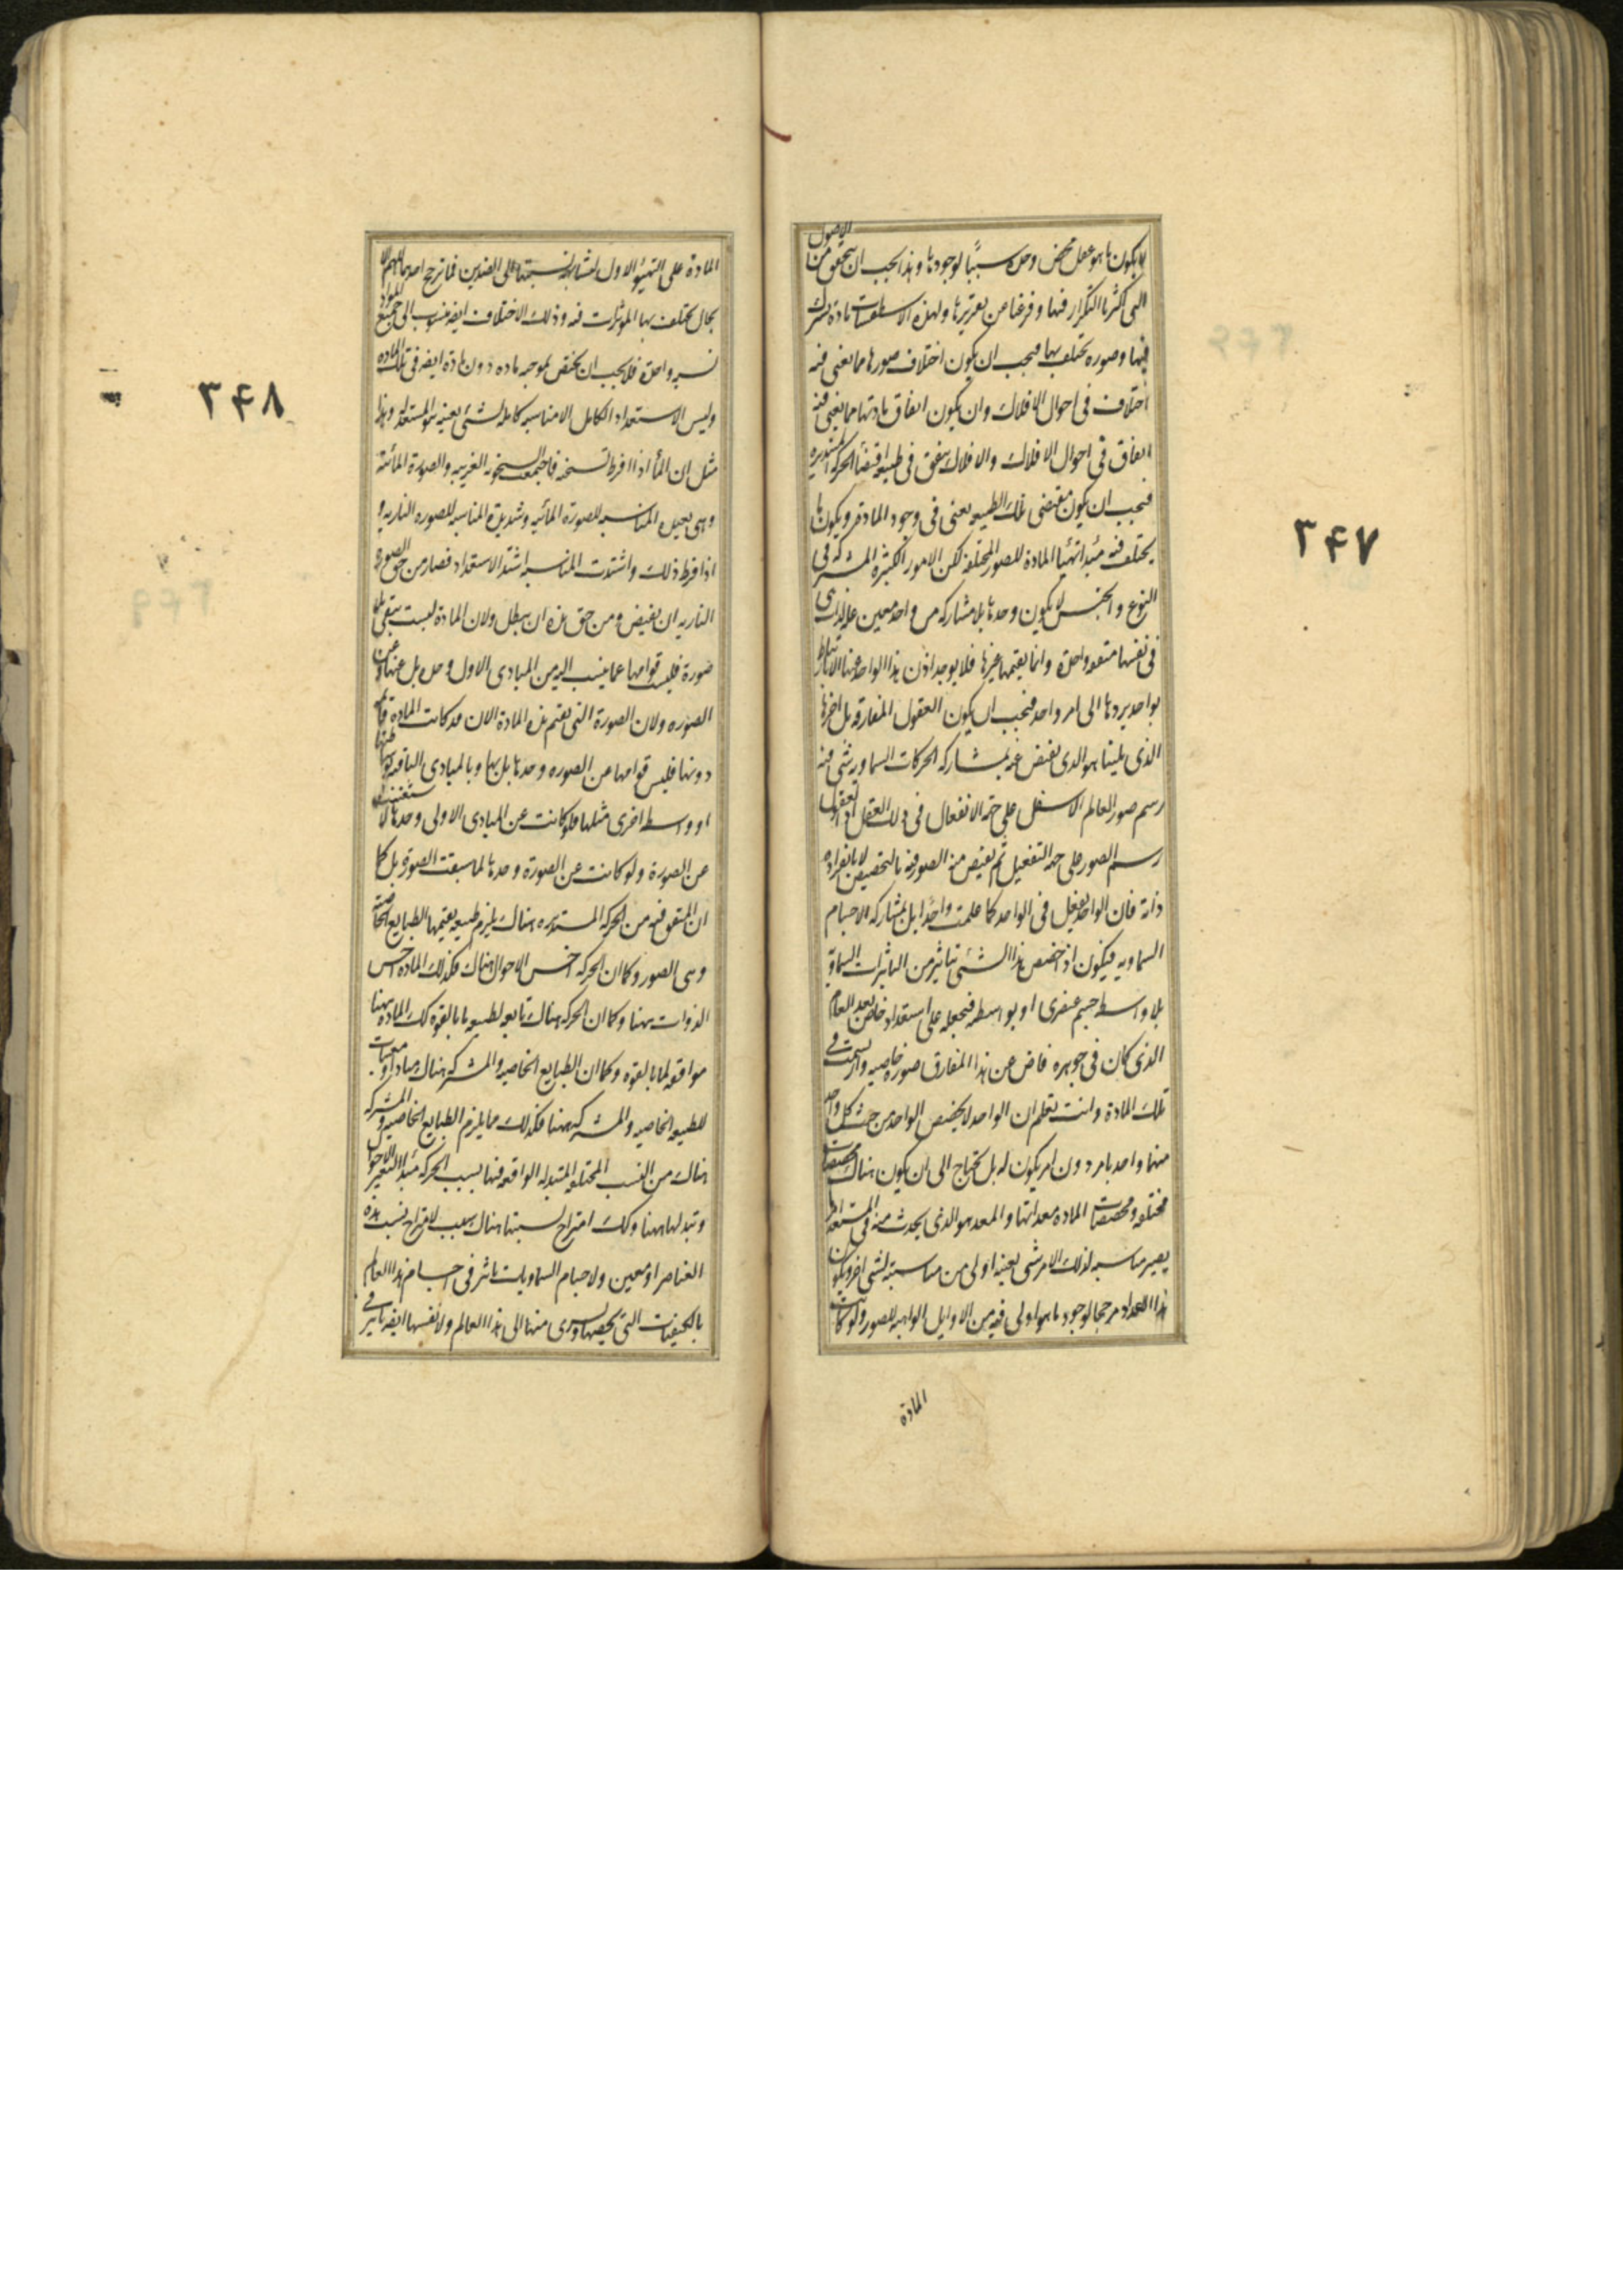 لا يكون ما هو عقل محض وحده سببًا لوجودها وهذا يجب ان يتحقق من الاصول
التى اكثرنا التكرار فيها وفرغنا من تقريرها ولهذه الاسطقسات مادة تشترك
فيها وصوره تختلف بها فيجب ان يكون اختلاف صورها مما يعنى فيه
اختلاف فى احوال الافلاك وان يكون اتفاق مادتها مما يعنى فيه
اتفاق فى احوال الافلاك والافلاك يتفق فى طبيعه اقتضا الحركه المستديره
فيجب ان يكون مقتضى تلك الطبيعه يعنى فى وجود المادة ويكون ما
يختلف فيه مبدا تهيا المادة للصور المختلفه لكن الامور الكثيره المشتركه فى
النوع والجنس لا يكون وحدها بلا مشاركه من واحد معين عله لذات هى
فى نفسها متفقه واحدة وانما يقيمها غيرها فلا يوجد اذن هذا الواحد عنها الا بارتباط
بواحد يردها الى امر واحد فيجب ان يكون العقول المفارقه بل اخرها
الذى يلينا هو الذى يفيض عنه بمشاركه الحركات السماويه شى فيه
رسم صور العالم الاسفل على جهة الانفعال فى ذلك العقل او العقول
رسم الصور على جهه التفعيل ثم يفيض منه الصور فيه بالتخصيص لا بانفراد
ذاته فان الواحد يفعل فى الواحد كما علمت واحدًا بل بمشاركه الاجسام
السماويه فيكون اذا خصص هذا الشئ تاثير من التاثيرات السماوية
بلا واسطه جسم عنصرى او بواسطه فيجعله على استعداد خاص بعد العام
الذى كان فى جوهره فاض عن هذا المفارق صوره خاصيه وارتسمت فى
تلك المادة وانت تعلم ان الواحد لا يخصص الواحد من حيث كل واحد
منهما واحد بامر دون امر يكون له بل يحتاج الى ان يكون هناك مخصصات
مختلفه ومخصصات المادة معداتها والمعد هو الذى يحدث منه فى المستعد امر ما
يصير مناسبه لذلك الامر لشى بعينه اولى من مناسبته لشى اخر ويكون
هذا الاعداد مرجحا لوجود ما هو اولى فيه من الاوايل الواهبه للصور ولو كانت
المادة
٣٤٧
المادة على التهيؤ الاول لتشابهت نسبتها الى الضدين فما ترجح احدهما اللهم الا
بحال تختلف بها الموثرات فيه وذلك الاختلاف ايضه منسوب الى جميع المواد
نسبه واحدة فلا يجب ان يختص بموجبه ماده دون مادة ايضه فى تلك الماده
وليس الاستعداد الكامل الا مناسبه كامله لشئ بعينه هو المستعد له وهذا
مثل ان المأ اذا افرط تسخينه فاجتمعت السخونه الغريبه والصورة المائية
وهى بعيدة المناسبه للصورة المائيه وشديدة المناسبه للصوره الناريه و
اذا فرط ذلك واشتدت المناسبه اشتد الاستعداد فصار من حق الصوره
الناريه ان يفيض ومن حق هذه ان يبطل ولان المادة ليست يبقى بلا
صورة فليست قوامها عما ينسب اليه من المبادى الاول وحده بل عنها وعن
الصوره ولان الصورة التى يقيم هذه المادة الان قد كانت المادة قائمه
دونها فليس قوامها عن الصوره وحدها بل بها وبالمبادى الباقيه بوساطتها
او واسطه اخرى مثلها فلو كانت عن المبادى الاولى وحدها لاستغنت
عن الصورة ولو كانت عن الصورة وحدها لما سبقت الصورة بل كما
ان المتفق فيه من الحركه المستديره هناك يلزم طبيعه يقيمها الطبايع الخاصيه
وهى الصور وكما ان الحركه اخس الاحوال هناك فكذلك الماده اخس
الذوات ههنا وكما ان الحركه هناك تابعه لطبيعه ما بالقوه كك المادة ههنا
موافقه لما بالقوه وكما ان الطبايع الخاصيه والمشتركه هناك مبادى او معينات
للطبيعه الخاصيه والمشتركه ههنا فكذلك مما يلزم الطبايع الخاصيه والمشتركه
هناك من النسب المختلفه المتبدله الواقعه فيها بسبب الحركه مبدا لتغير الاحوال
وتبدلها ههنا وكك امتزاج نسبتها هناك سبب لامتزاج نسب هذه
العناصر او معين ولاجسام السماويات تاثر فى اجسام هذا العالم
بالكيفيات التى يخصها ويسرى منها الى هذا العالم ولانفسها ايضه تاثير فى
٣٤٨